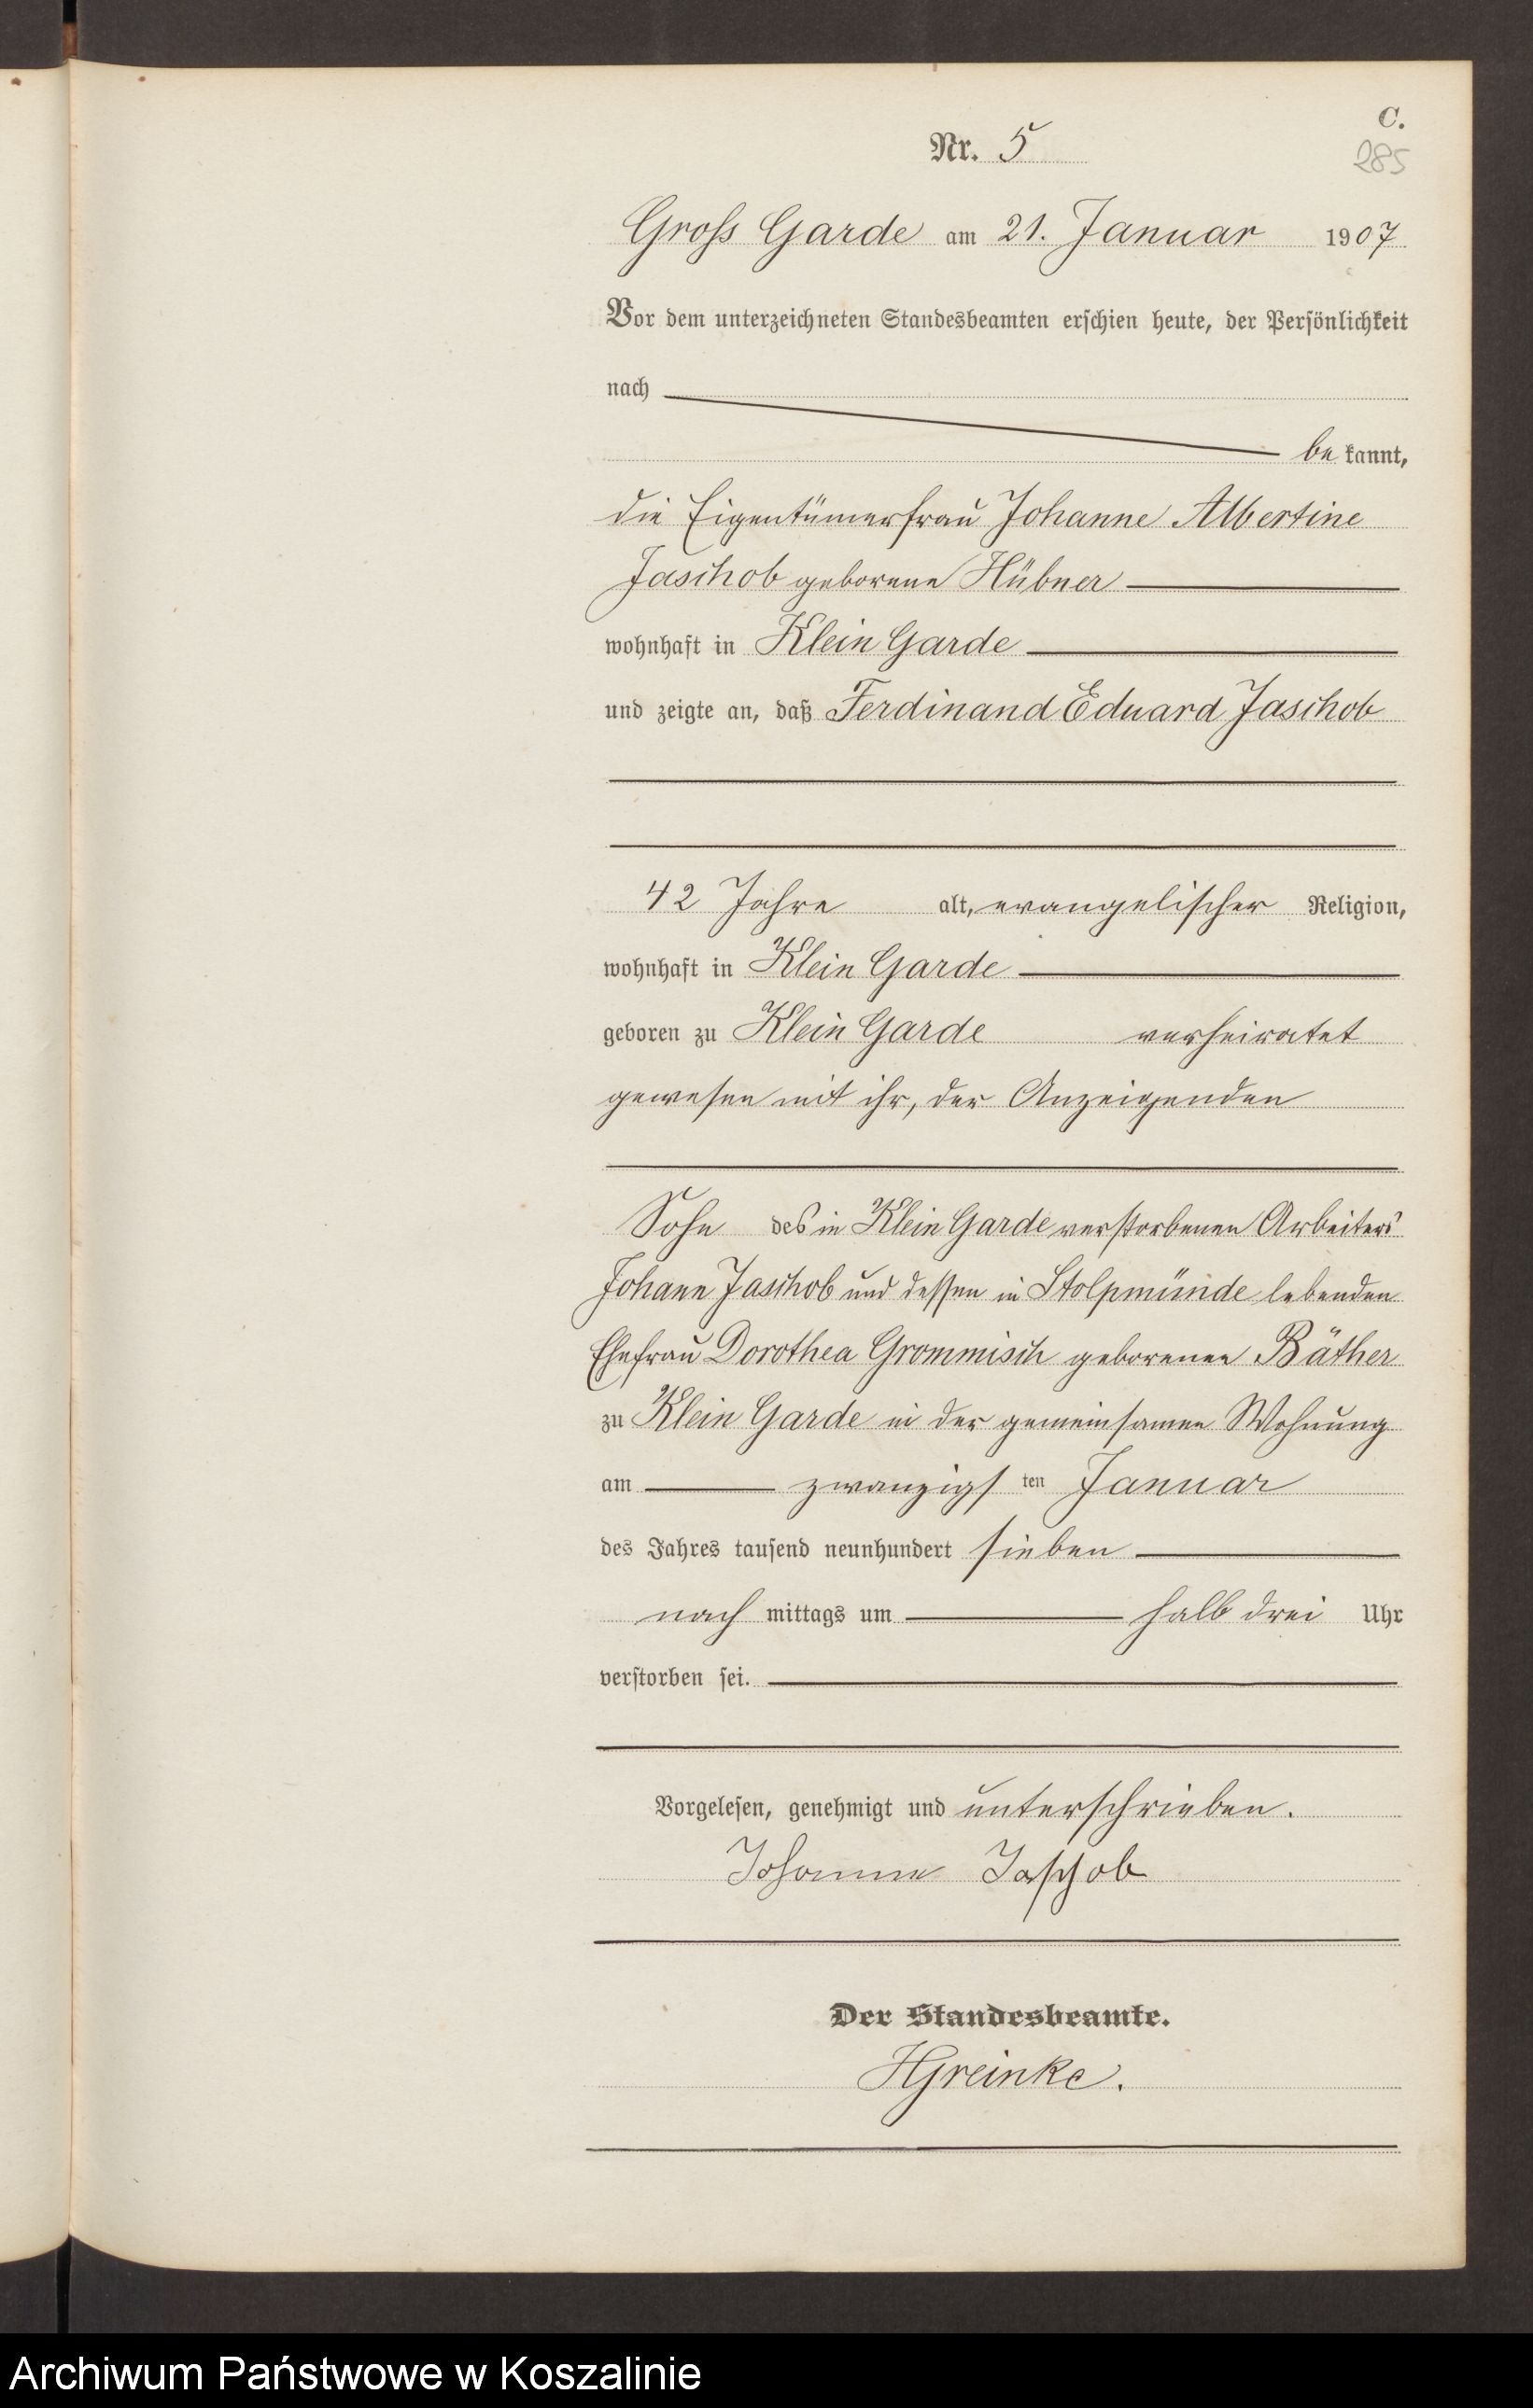 C.
Nr. 5
285
Gross Garde am 21. Januar 1907
Vor dem unterzeichneten Standesbeamten erschien heute, der Persönlichkeit
nach
bekannt,
die Eigentümerfrau Johanne Albertine
Jaschob geborene Hübner
wohnhaft in Klein Garde
und zeigte an, daß Ferdinand Eduard Jaschob
42 Jahre alt, evangelischer Religion,
wohnhaft in Klein Garde
geboren zu Klein Garde verheiratet
gewesen mit ihr, der Anzeigenden
Sohn des in Klein Garde verstorbenen Arbeiters
Johann Jaschob und dessen in Stolpmünde lebenden
Ehefrau Dorothea Grommisch geborenen Bäther
zu Klein Garde in der gemeinsamen Wohnung
am zwanzigsten Januar
des Jahres tausend neunhundert sieben
nachmittags um halb drei Uhr
verstorben sei.
Vorgelesen, genehmigt und unterschrieben.
Johanne Jaschob
Der Standesbeamte.
HGreinke.
Archiwum Państwowe w Koszalinie